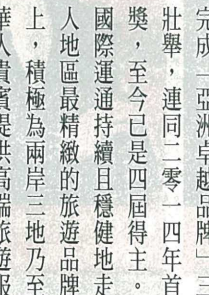 完成「亞洲卓越品牌」三
壯舉,連同二零一四年首
獎,至今已是四屆得主。
國際運通持續且穩健地走
人地區最精緻的旅遊品牌
上,積極為兩岸三地乃至
華人貴賓提供高端旅遊服